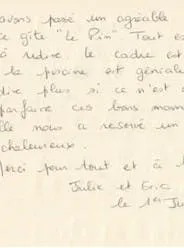 avons passé un agréable
ce gîte "Le Pin" Tout es
à redire. Le cadre est
la piscine est géniale
dire plus si ce n'est
parfaire ces bons mom
elle nous a reservé un
chaleureux.
Merci pour tout et à
Julie et Eric
le 1er Jui